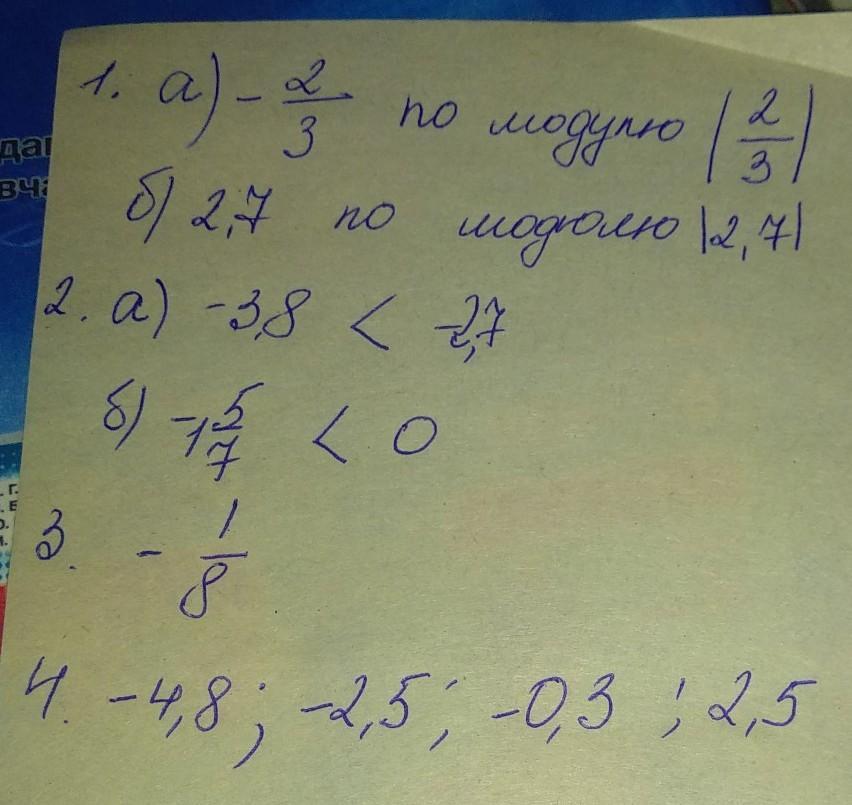 1. а) - 2/3 по модулю |2/3|
б) 2,7 по модюлю |2,7|
2. а) -3,8 < -2,7
б) -1 5/7 < 0
3. - 1/8
4. -4,8; -2,5; -0,3; 2,5